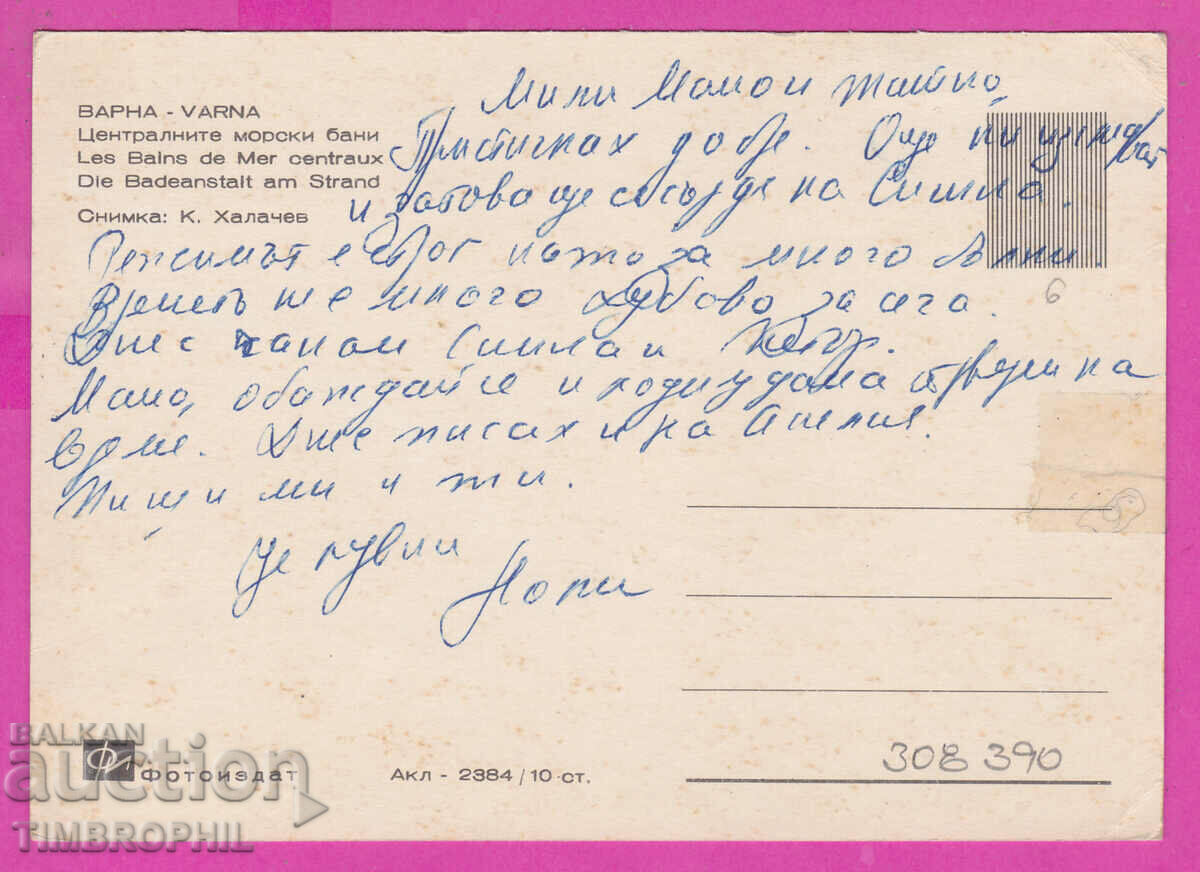 ВАРНА - VARNA
Централните морски бани
Les Bains de Mer centraux
Die Badeanstalt am Strand
Снимка: К. Халачев
Мили Мамо и татко,
Пристигнах добре. Още ни
и затова ще се на Сишла.
Режимът е строг като за много болни.
Времето не е много хубаво за сега.
Днес чакам Сишла и
Мамо, обаждай се и на
Днес писах и на Анелия.
Пиши ми и ти.
Целувки
6
Фотоиздат
Акл - 2384/10 ст.
308 390
BALKAN
auction
TIMBROPHIL